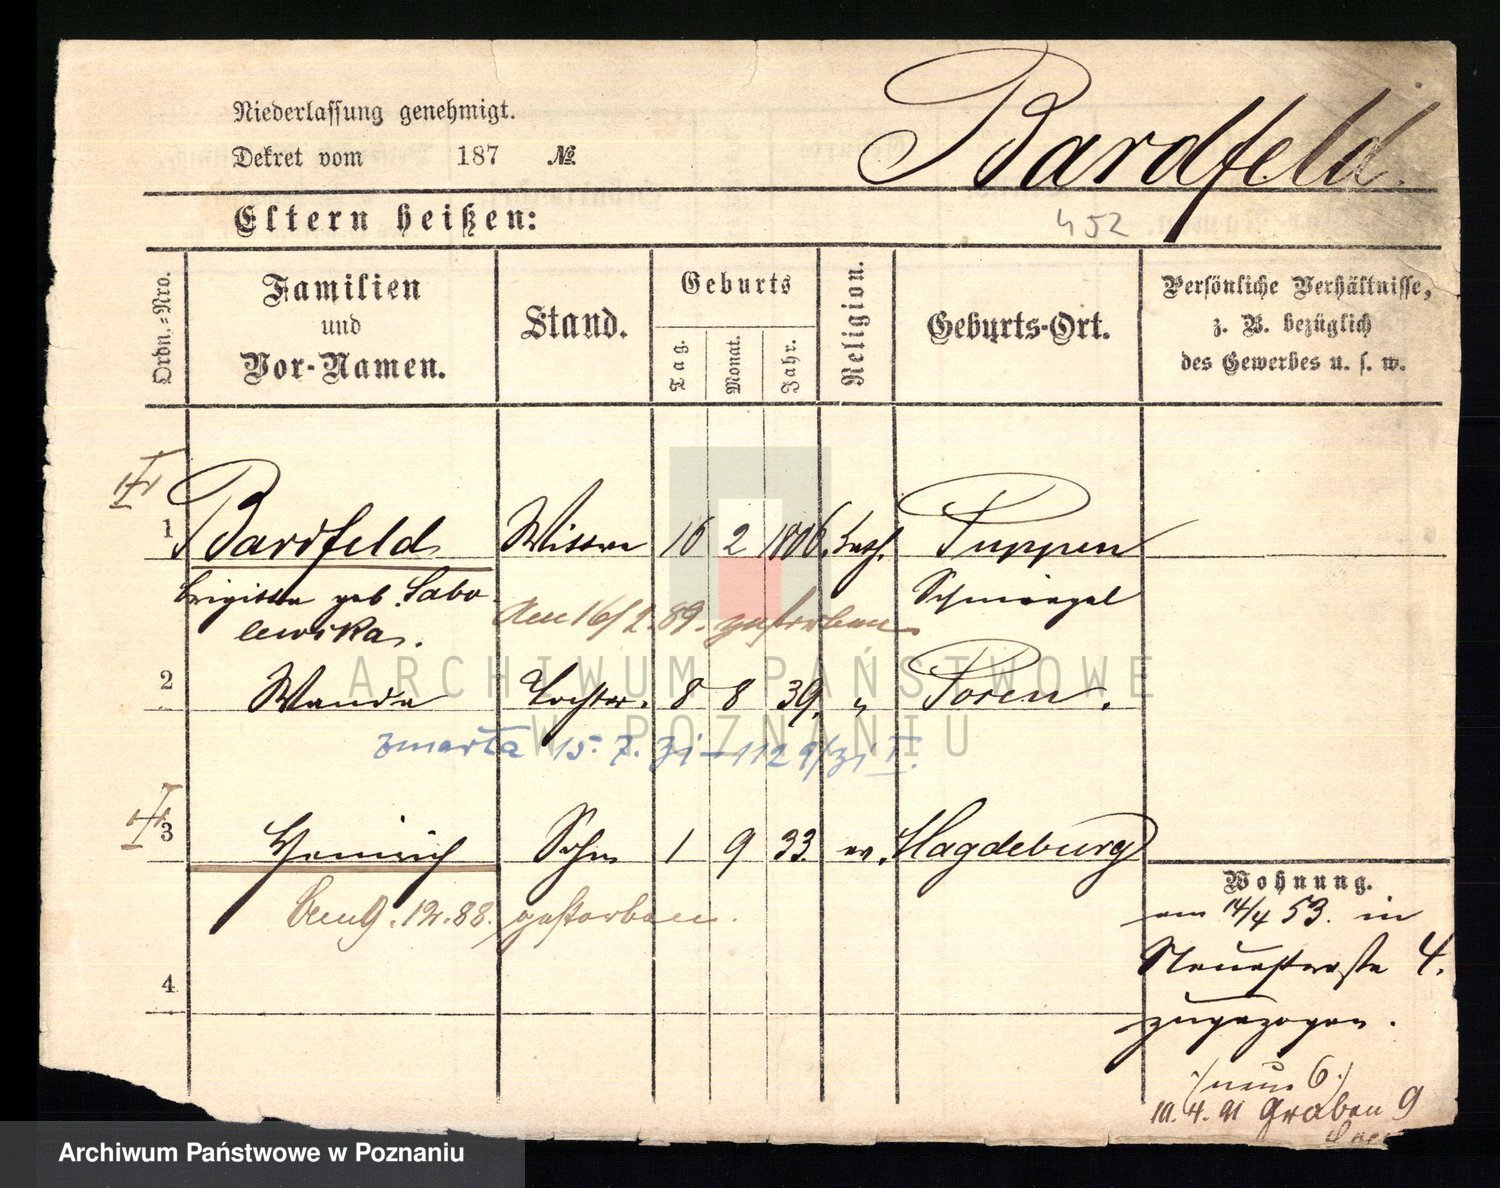 Niederlassung genehmigt.
Dekret vom 187 №
Bardfeld.
Eltern heißen:
452
Ordn.-Nro.
Familien
und
Vor-Namen.
Stand.
Geburts
Tag.
Monat.
Jahr.
Religion.
Geburts-Ort.
Persönliche Verhältnisse,
z. B. bezüglich
des Gewerbes u. s. w.
1 Bardfeld Wittwe 16 2 1806. kath. Puppen
Brigitta geb. Sabo- Schmiegel
lewska.
Am 16/2. 89. gestorben
2 Wanda Tochter. 8 8 39. " Posen.
zmarła 15. 7. 31 – 1129/31 II.
3 Heinrich Sohn 1 9 33. ev. Magdeburg
Am 9. 12. 88. gestorben.
4
Wohnung.
am 14/4 53. in
Neuestraße 4.
zugezogen.
./. neue 6 ./.
10. 4. 91 Graben 9
ARCHIWUM PAŃSTWOWE
W POZNANIU
Archiwum Państwowe w Poznaniu